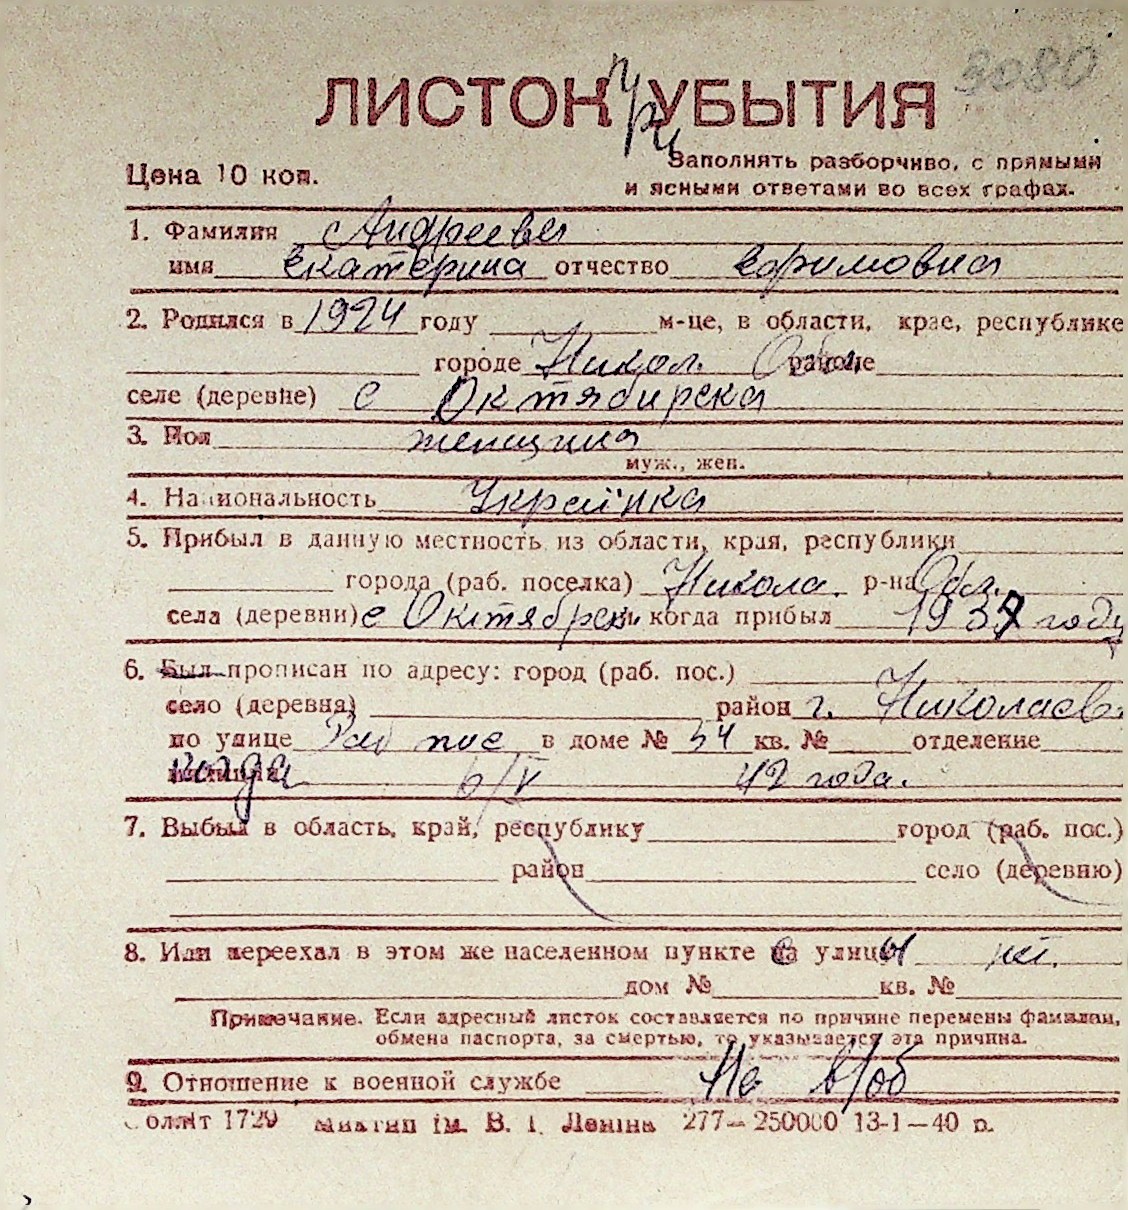 3080
ЛИСТОК УБЫТИЯ
Цена 10 коп.
Заполнять разборчиво, с прямыми
и ясными ответами во всех графах.
1. Фамилия Андреева
имя Екатерина отчество Ефимовна
2. Родился в 1924 году м-це, в области, крае, республике
городе Никол. Обл. районе
селе (деревне) с Октябирска
3. Пол женщина
муж., жен.
4. Национальность Украинка
5. Прибыл в данную местность из области, края, республики
города (раб. поселка) Никола. р-на Обл.
села (деревни) с Октябрск. и когда прибыл 1937 году
6. Был прописан по адресу: город (раб. пос.)
село (деревня) район г. Николаев.
по улице Раб пос в доме № 54 кв. № отделение
милиции когда 6/V 42 года.
7. Выбыл в область, край, республику город (раб. пос.)
район село (деревню)
8. Или переехал в этом же населенном пункте на улицы нет.
дом № кв. №
Примечание. Если адресный листок составляется по причине перемены фамилии,
обмена паспорта, за смертью, то указывается эта причина.
9. Отношение к военной службе Не в/об
1729 ім. В. І. Леніна 277—250000 13-1—40 р.